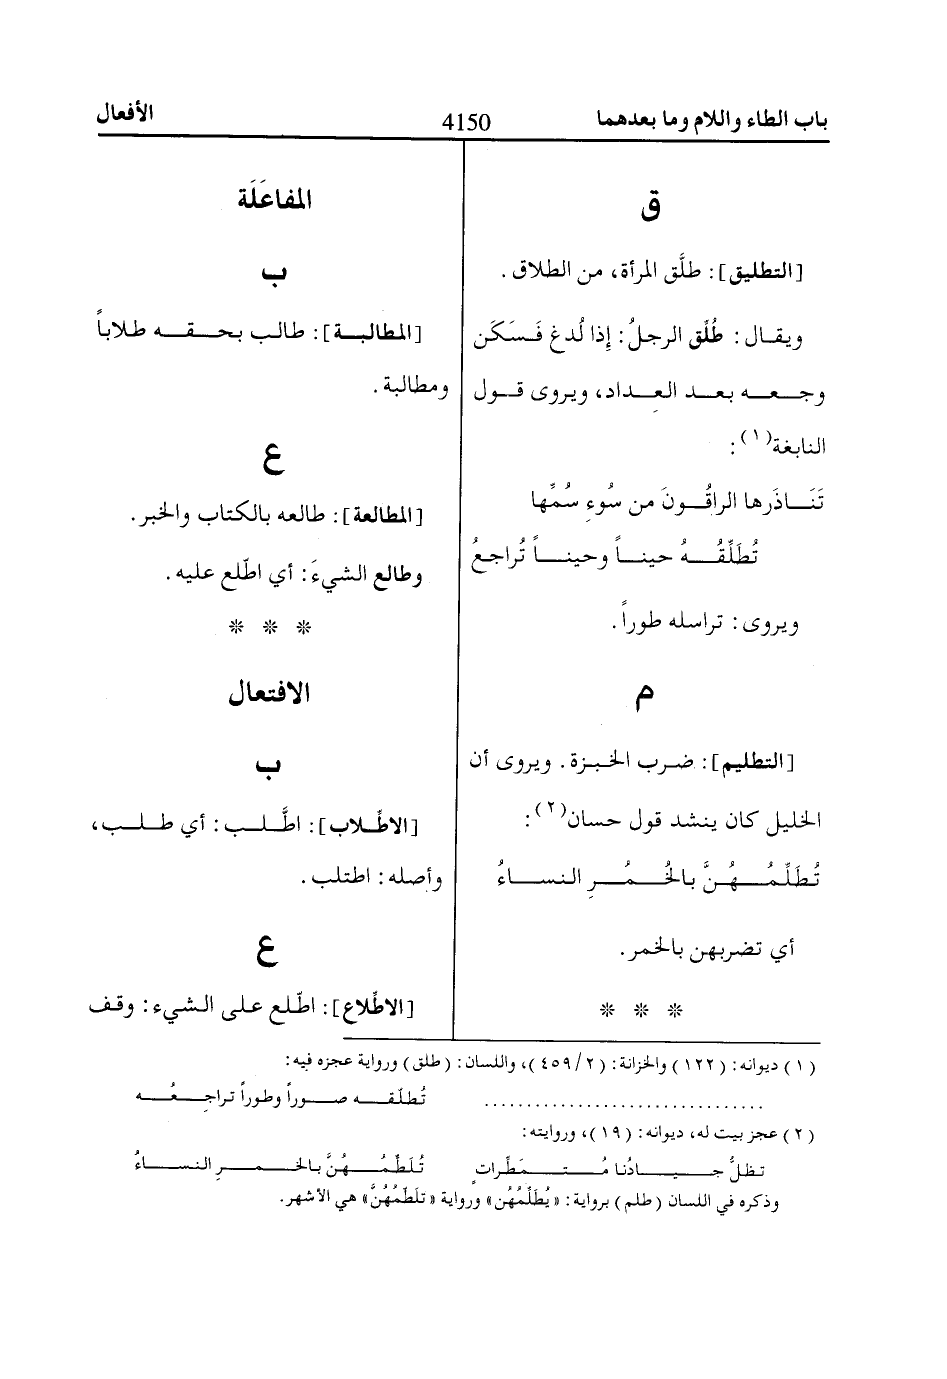 باب الطاء واللام وما بعدهما 4150 الأفعال
ق
[التطليق]: طلَّق المرأة، من الطلاق.
ويقال: طُلِّق الرجلُ: إذا لُدغ فَسَكَن
وجعه بعد العِداد، ويروى قول
النابغة(١):
تَنَاذَرها الراقُونَ من سُوءِ سُمِّها
تُطَلِّقُهُ حيناً وحيناً تُراجعُ
ويروى: تراسله طوراً.
م
[التطليم]: ضرب الخبزة. ويروى أن
الخليل كان ينشد قول حسان(٢):
تُطَلِّمُهُنَّ بالخُمُرِ النساءُ
أي تضربهن بالخمر.
* * *
المفاعَلَة
ب
[المطالبة]: طالب بحقه طلاباً
ومطالبة.
ع
[المطالعة]: طالعه بالكتاب والخبر.
وطالع الشيءَ: أي اطّلع عليه.
* * *
الافتعال
ب
[الاطِّلاب]: اطَّلب: أي طلب،
وأصله: اطتلب.
ع
[الاطِّلاع]: اطّلع على الشيء: وقف
(١) ديوانه: (١٢٢) والخزانة: (٤٥٩/٢)، واللسان: (طلق) ورواية عجزه فيه:
................................ تُطلّقه صوراً وطوراً تراجِعُه
(٢) عجز بيت له، ديوانه: (١٩)، وروايته:
تظلُّ جيادُنا مُتمَطِّراتٍ تُلَطِّمُهُنَّ بالخمرِ النساءُ
وذكره في اللسان (طلم) برواية: «يُطَلِّمُهُن» ورواية «تلَطِّمُهُنَّ» هي الأشهر.